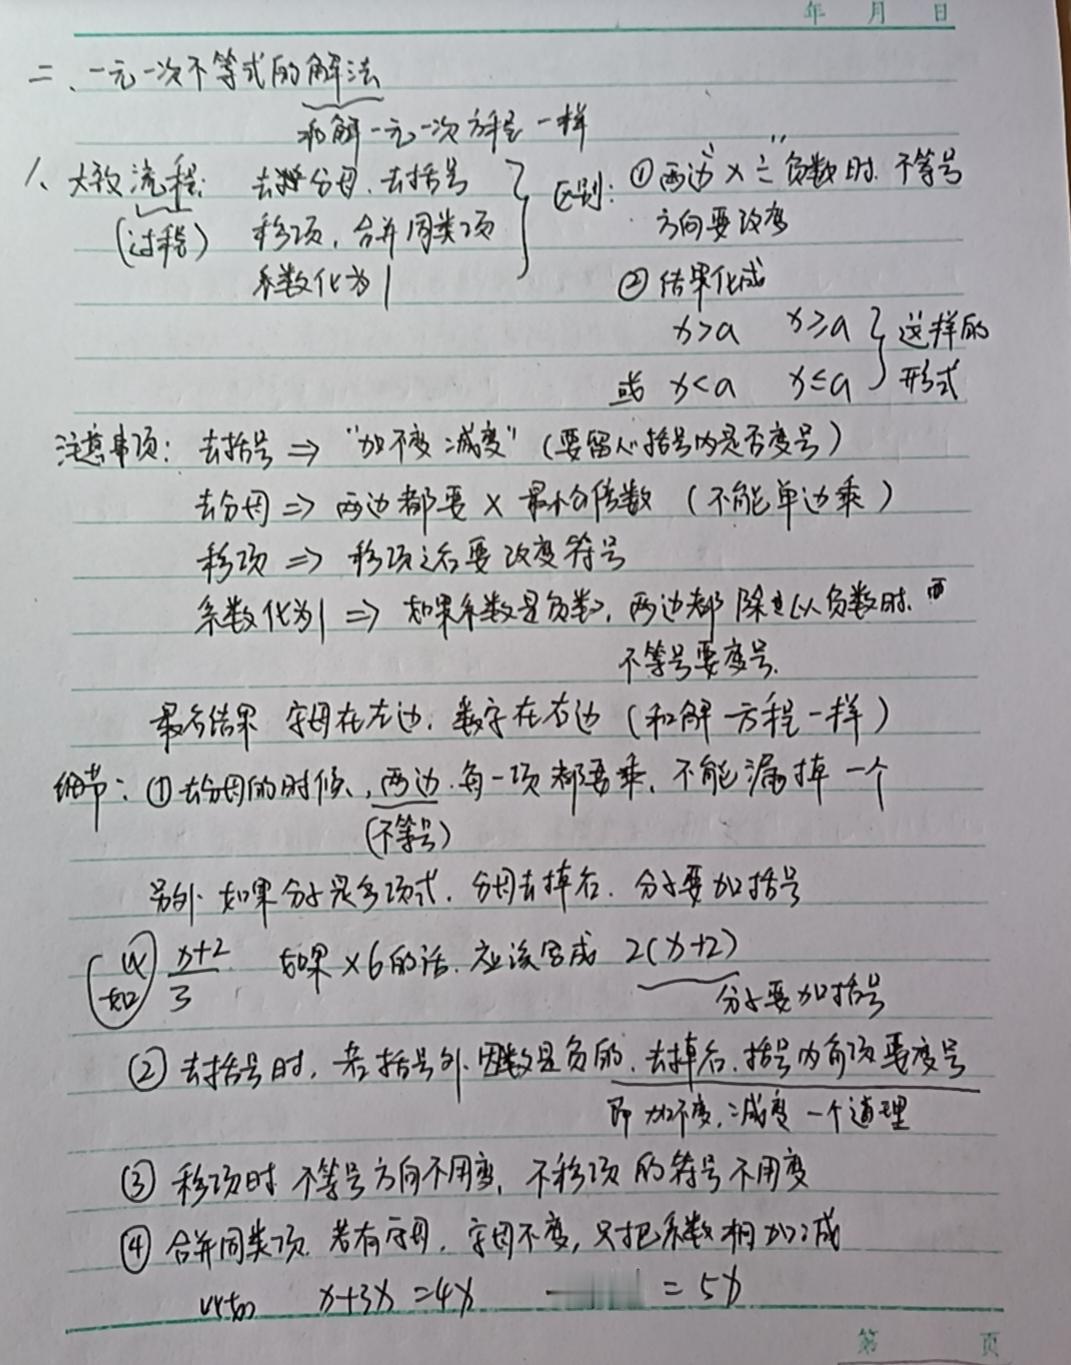 年 月 日
二、一元一次不等式的解法
和解一元一次方程一样
1、大致流程: 去分母、去括号 区别: ①两边“×÷”负数时. 不等号
(过程) 移项, 合并同类项 方向要改变
系数化为1 ②结果化成
x>a x≥a 这样的
或 x<a x≤a 形式
注意事项: 去括号 ⇒ “加不变 减变” (要留心括号内是否变号)
去分母 ⇒ 两边都要 × 最小公倍数 (不能单边乘)
移项 ⇒ 移项之后要改变符号
系数化为1 ⇒ 如果系数是负数, 两边都除以负数时.
不等号要变号.
最后结果 字母在左边. 数字在右边 (和解方程一样)
细节: ①去分母的时候, 两边.每一项都要乘. 不能漏掉一个
(不等号)
另外. 如果分子是多项式. 分母去掉后. 分子要加括号
(比如) x+2/3 如果×6的话. 应该写成 2(x+2)
分子要加括号
②去括号时, 若括号外因数是负的. 去掉后. 括号内各项要变号
即加不变, 减变 一个道理
③移项时 不等号方向不用变, 不移项的符号不用变
④合并同类项. 若有字母, 字母不变, 只把系数相加减
比如 x+3x=4x =5x
第 页